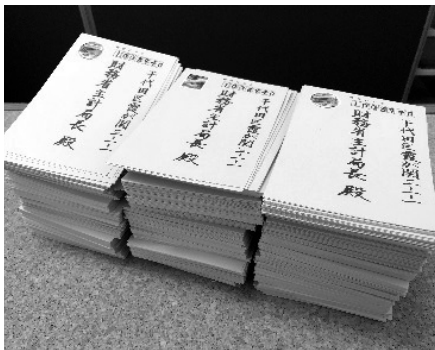 千代田区霞が関
財務省主計局長 殿
千代田区霞が関
財務省主計局長 殿
千代田区霞が関
財務省主計局長 殿